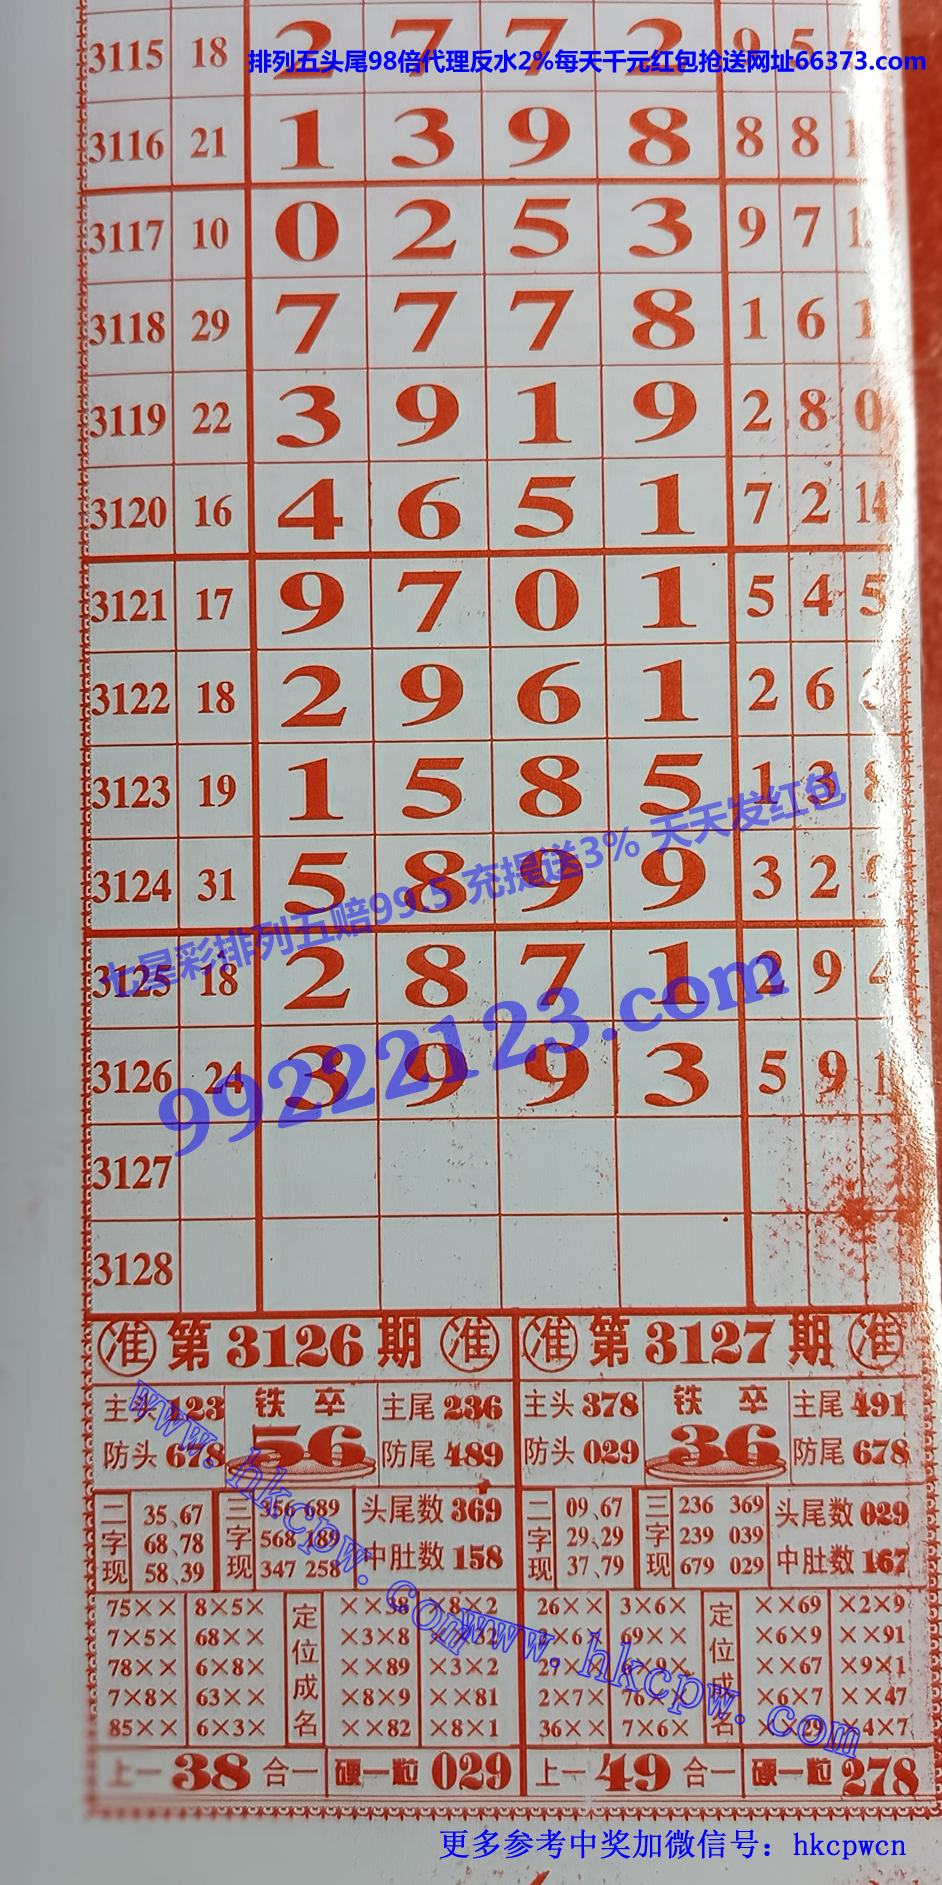 3115 18 2 7 7 2 9 5
排列五头尾98倍代理反水2%每天千元红包抢送网址66373.com
3116 21 1 3 9 8 8 8
3117 10 0 2 5 3 9 7
3118 29 7 7 7 8 1 6
3119 22 3 9 1 9 2 8 0
3120 16 4 6 5 1 7 2 14
3121 17 9 7 0 1 5 4 5
3122 18 2 9 6 1 2 6
3123 19 1 5 8 5 1 3 8
3124 31 5 8 9 9 3 2
七星彩排列五赔99.5 充提送3% 天天发红包
3125 18 2 8 7 1 2 9 4
99222123.com
3126 24 3 9 9 3 5 9
3127
3128
准 第3126期 准 准 第3127期 准
主头 123 铁卒 主尾 236 主头 378 铁卒 主尾 491
防头 678 56 防尾 489 防头 029 36 防尾 678
二字现 35、67 三字现 356 689 头尾数 369 二字现 09、67 三字现 236 369 头尾数 029
68、78 568 189 29、29 239 039
58、39 347 258 中肚数 158 37、79 679 029 中肚数 167
75×× 8×5× 定位成名 ××38 ×8×2 26×× 3×6× 定位成名 ××69 ×2×9
7×5× 68×× ×3×8 69×× ×6×9 ××91
78×× 6×8× ××89 ×3×2 ××67 ×9×1
7×8× 63×× ×8×9 ××81 2×7× 76×× ×6×7 ××47
85×× 6×3× ××82 ×8×1 36×× 7×6× ××29 ×4×7
上一 38 合一 硬一粒 029 上一 49 合一 硬一粒 278
www.hkcpw.com
www.hkcpw.com
更多参考中奖加微信号：hkcpwcn